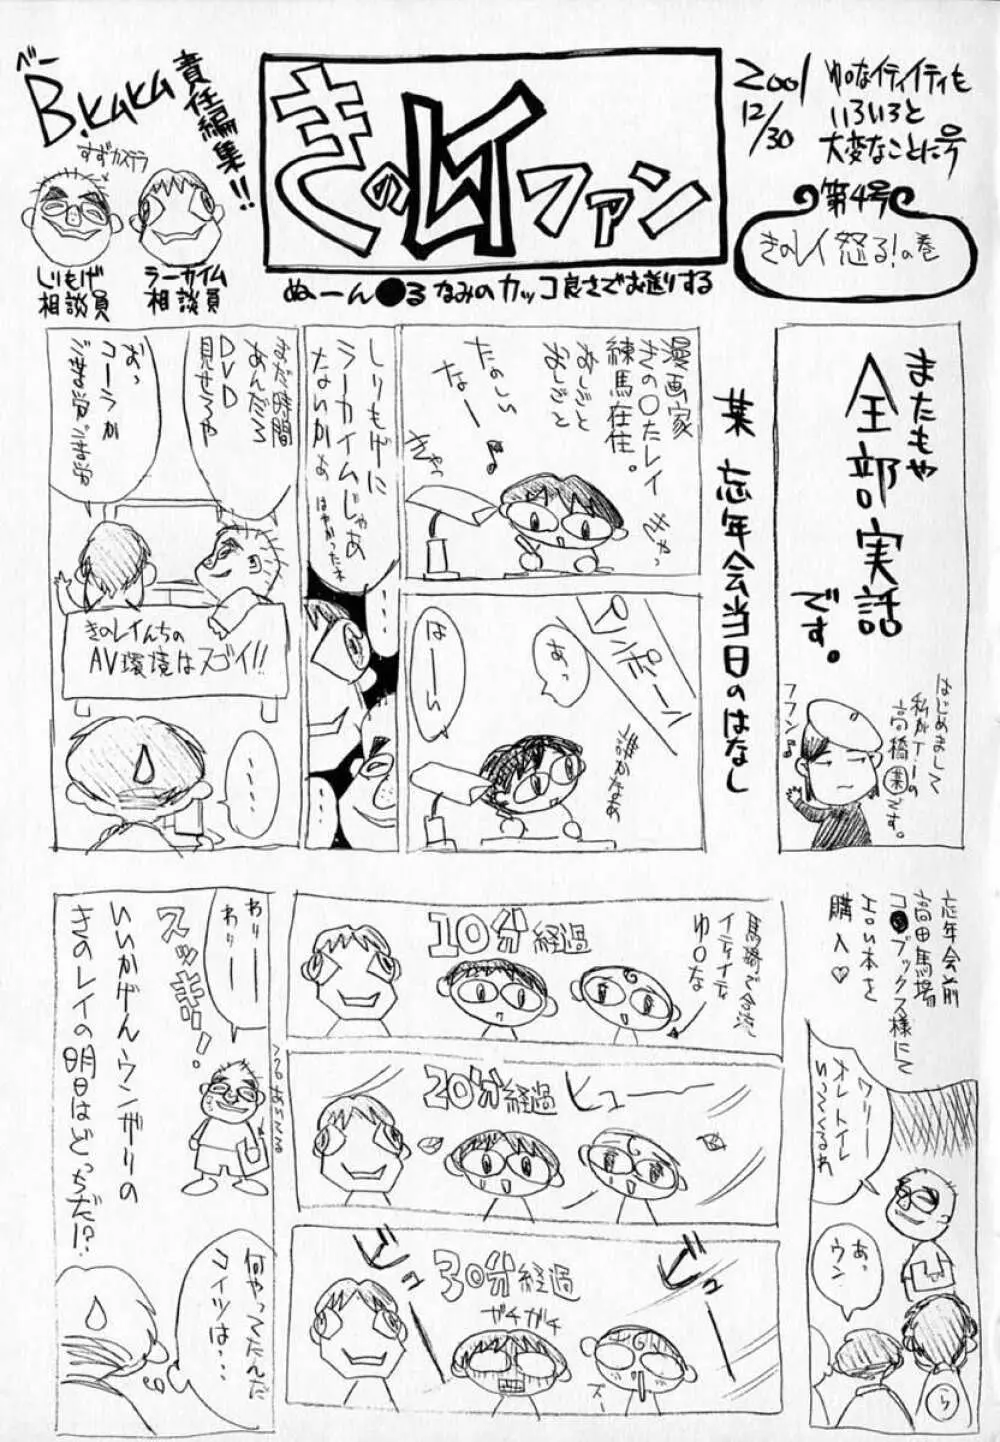 2001
12/30
ゆ○なイティイティも
いろいろと
大変なことに号
第4号
きのレイ怒る!の巻
きのレイファン
ぬーん●るなみのカッコ良さでお送りする
責任編集!!
べー
B.kaka
すずカステラ
しりもげ
相談員
ラーカイム
相談員
またもや
全部実話
です。
はじめまして
私がT-1の
高橋(業)です。
フフン♪
某 忘年会当日のはなし
漫画家
きの○たレイ
練馬在住。
おしごと
おしごと
たのしい
なー♪
きゃっ
きゃっ
ピンポーン
あっ
誰かなぁ
はーい
しりもげに
ラーカイムじゃあ
ないかぁ
はやかったネ
……
まだ時間
あんだろ
DVD
見せろや
おっ
コーラか
ご苦労ご苦労
きのレイんちの
AV環境はスゴイ!!
……
忘年会前
高田馬場
コ●ブックス様にて
エロい本を
購入♡
ワリー
オレトイレ
いってくるわ
あっ
ウン
ら
10分経過
馬場で合流
イティイティな
ゆ○な
20分経過
ヒュー
30分経過
ビュー
ビュ
ガチガチ
ズー
わりー
わりー
スッキリー!
いいかげんウンがりの
きのレイの明日はどっちだ!?
何やってたんだ
コイツは…